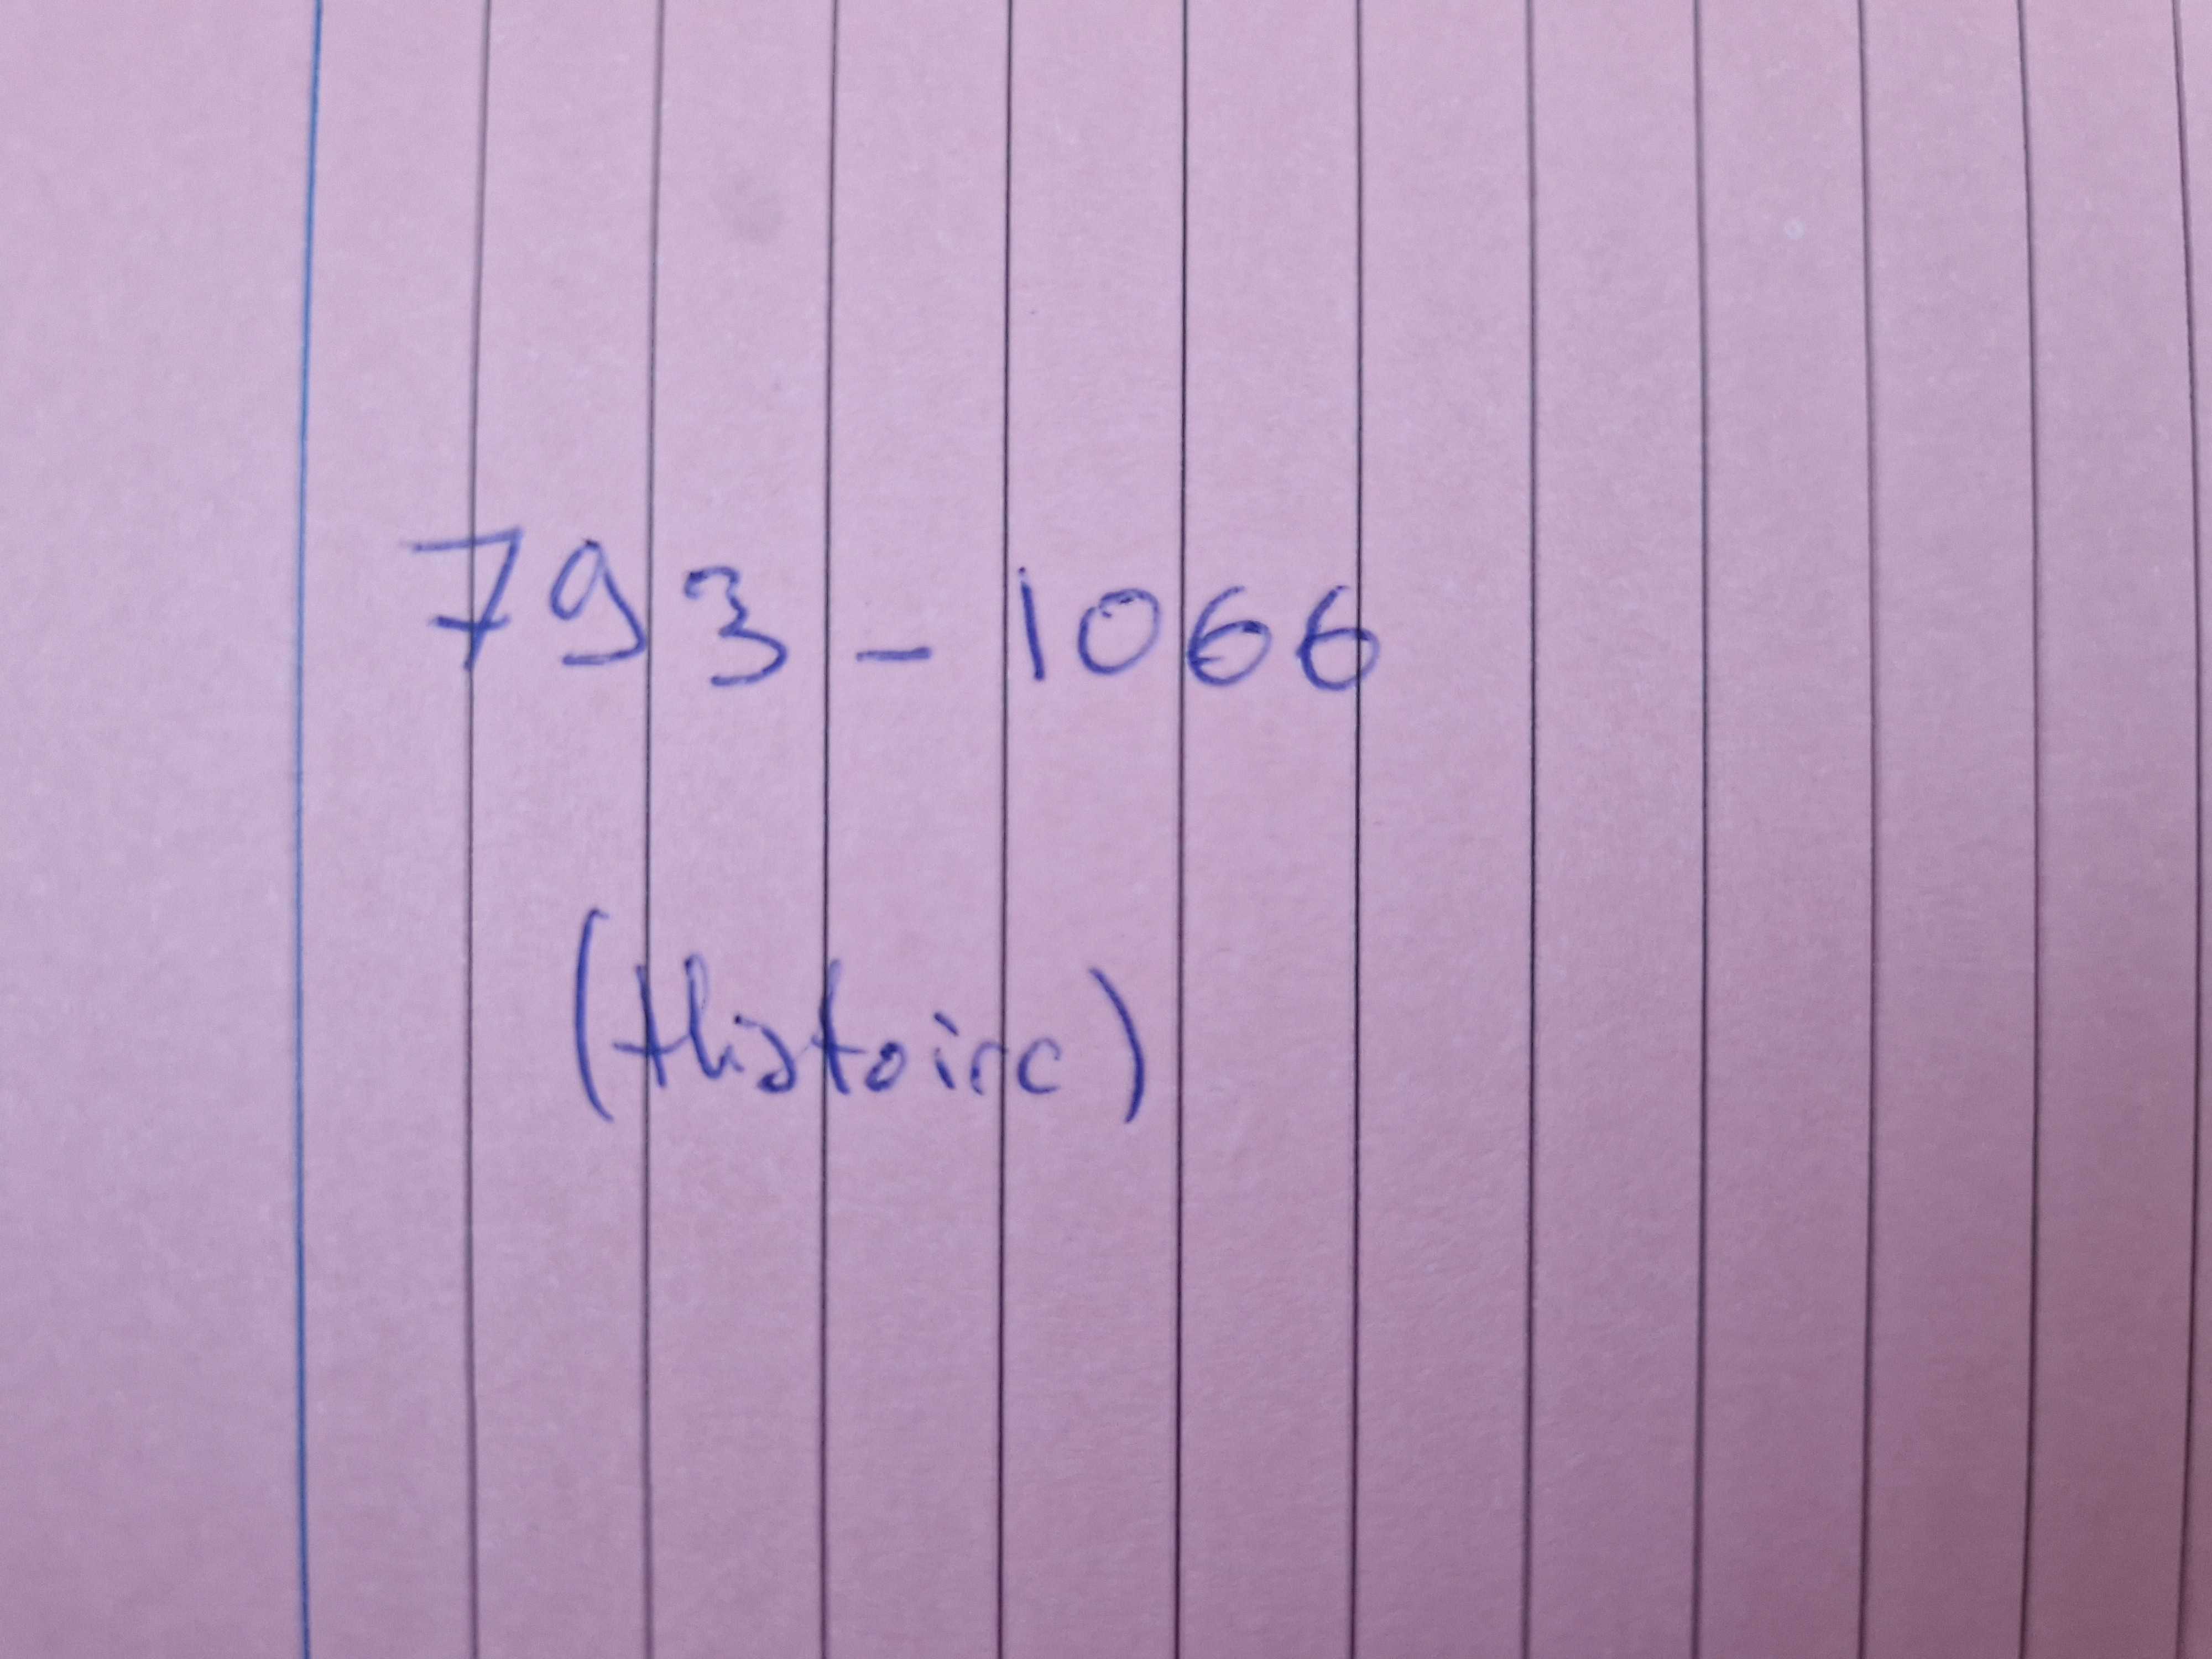 793 - 1066
(Histoire)